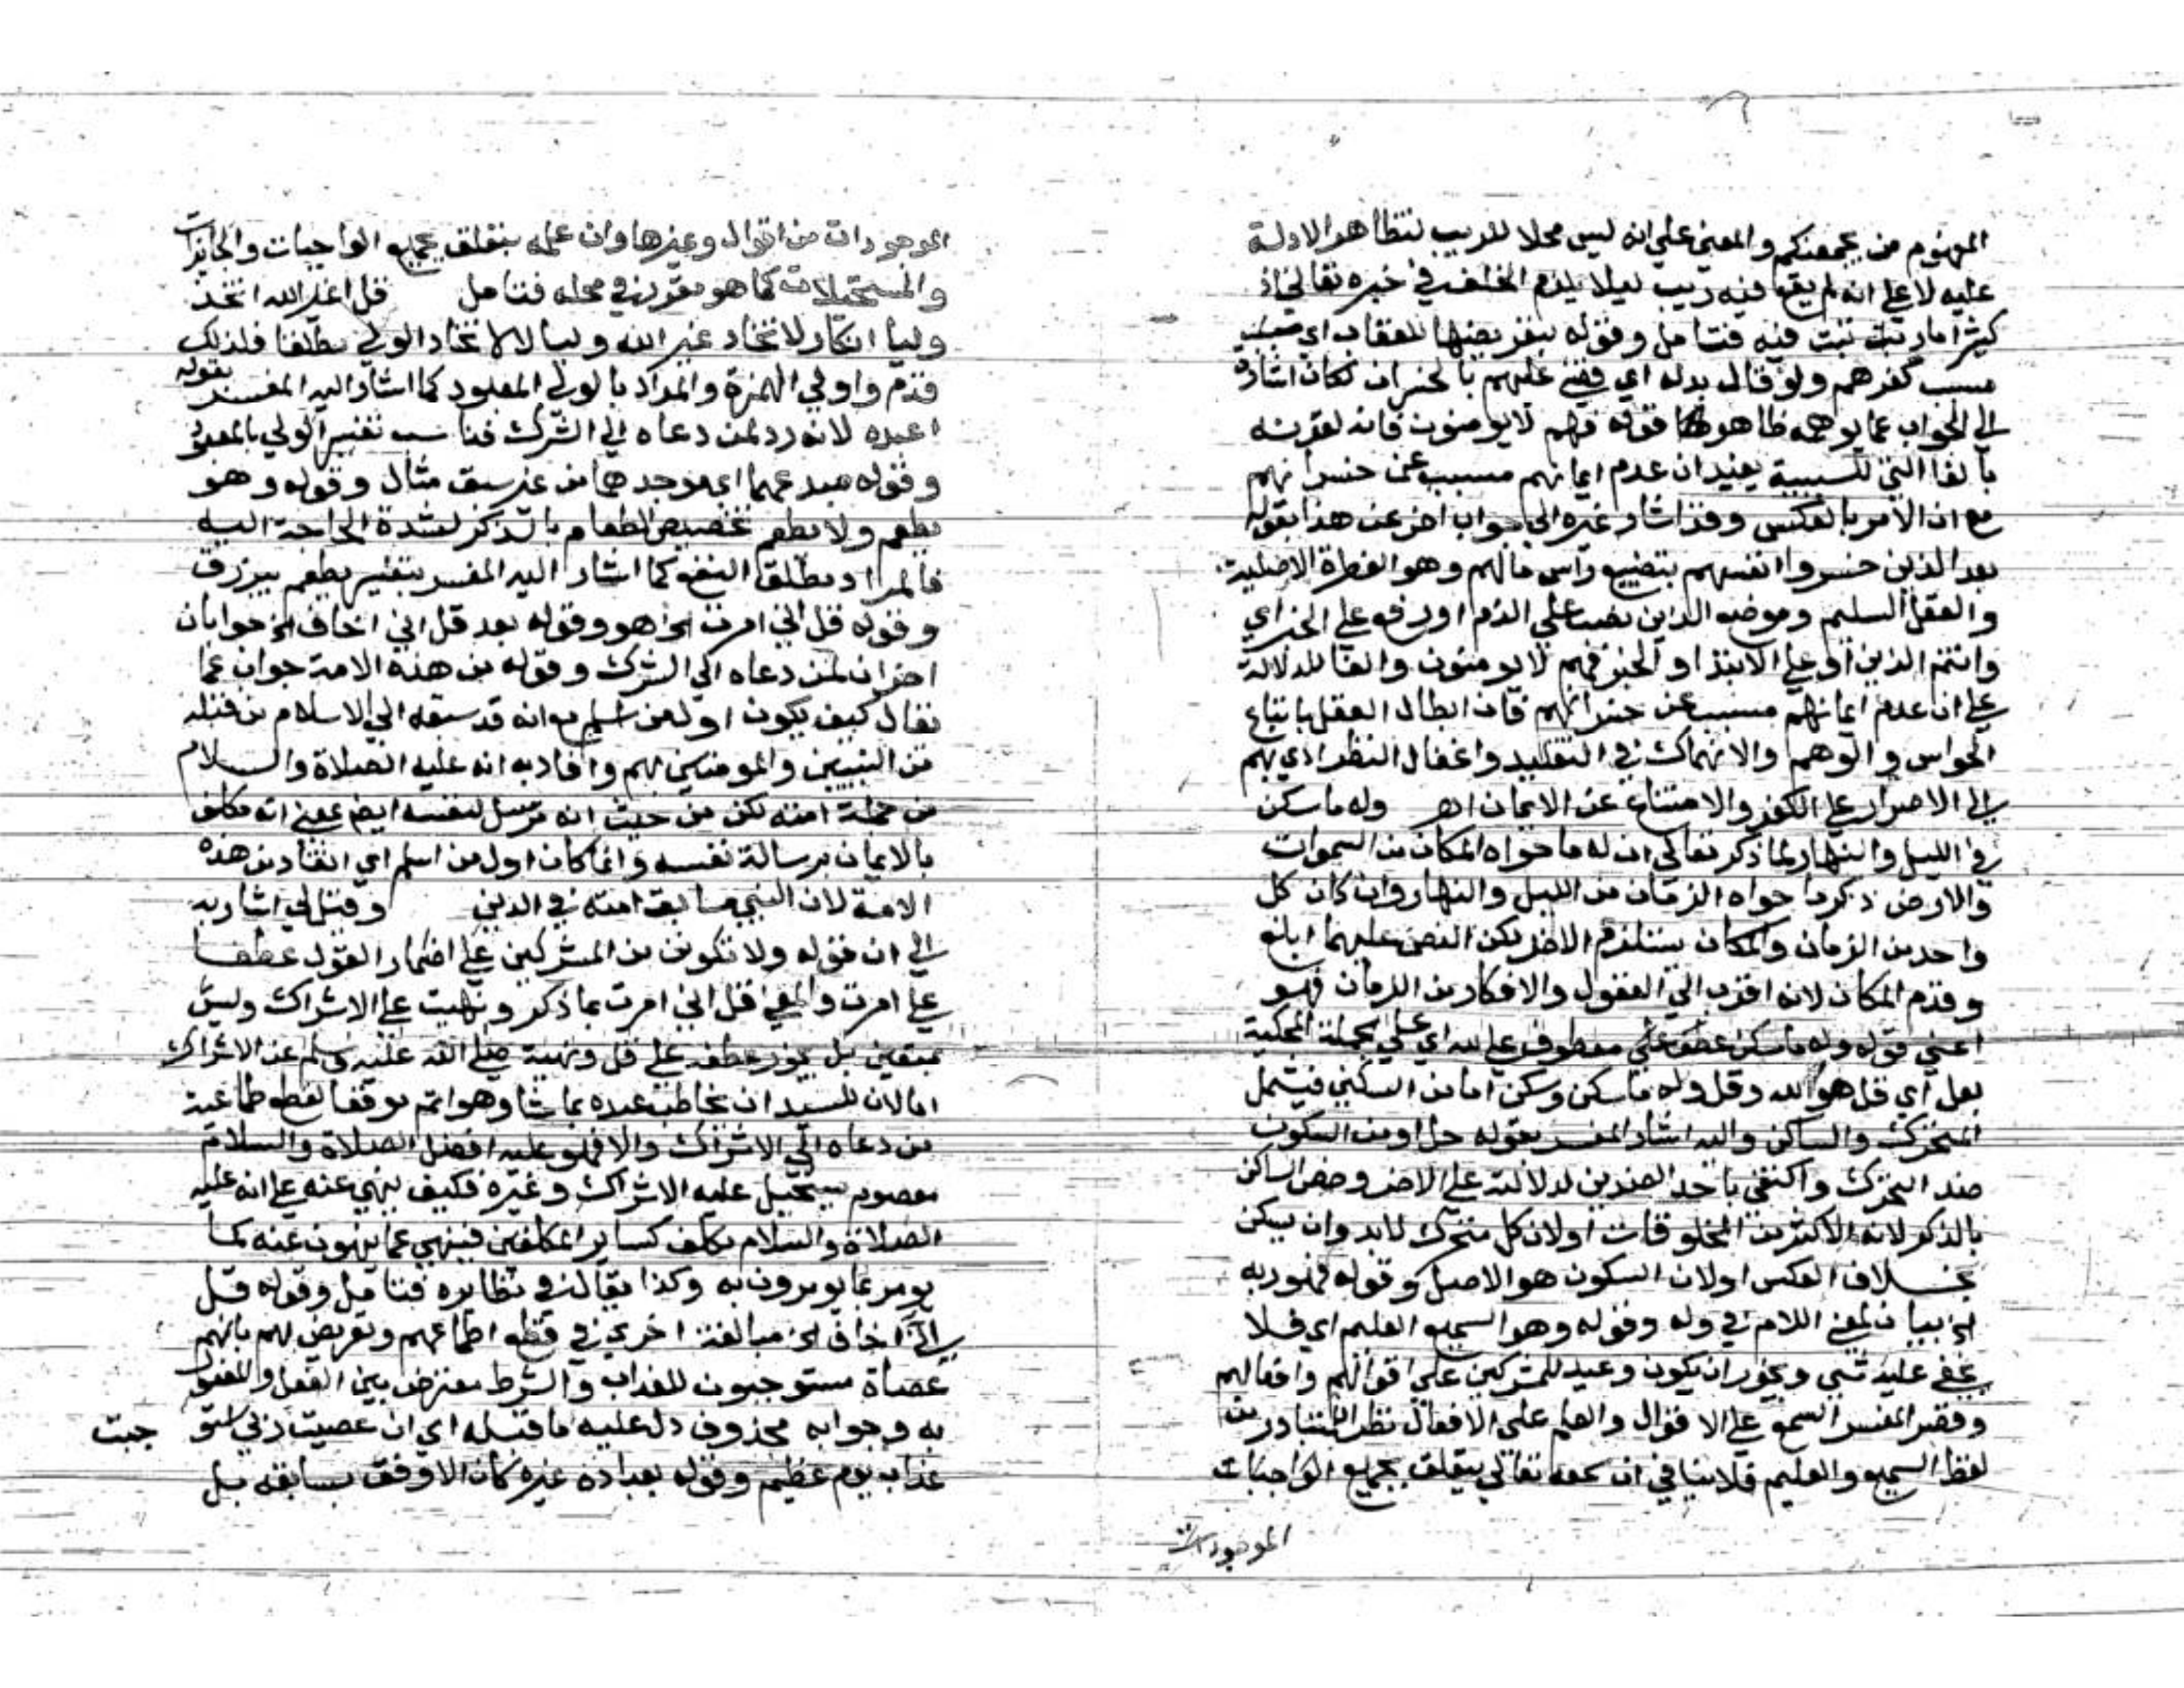 المفهوم من يجمعنكم والمعنى على انه ليس محلا للريب لتظاهر الادلة
عليه لا على انه لم يقع فيه ريب ليلا يلزم الخلف في خبره تعالى اذ
كثيرا ما ريب فيه فتامل وقوله بتعريضها للعذاب اي
بسبب كفرهم ولو قال بدله اي قضى عليهم بالخسران لكان اشارة
الى الجواب عما يوهمه ظاهر قوله فهم لا يومنون فانه لقرنه
بالفا التي للسببية يفيد ان عدم ايمانهم مسبب عن خسرانهم
مع ان الامر بالعكس وقد اشار غيره الى جواب اخر عن هذا بقوله
بعد الذين خسروا انفسهم بتضييع راس مالهم وهو الفطرة الاصلية
والعقل السليم وموضع الذين نصب على الذم او رفع على الخبر اي
وانتم الذين او على الابتدا والخبر فهم لا يومنون والفا للدلالة
على ان عدم ايمانهم مسبب عن خسرانهم فان ابطال العقل باتباع
الحواس والوهم والانهماك في التقليد واغفال النظر ادي بهم
الى الاصرار على الكفر والامتناع عن الايمان اهـ وله ما سكن
في الليل والنهار لما ذكر تعالى ان له ما حواه المكان من السموات
والارض ذكر ما حواه الزمان من الليل والنهار وان كان كل
واحد من الزمان والمكان يستلزم الاخر لكن النص عليهما ابلغ
وقدم المكان لانه اقرب الى العقول والافكار من الزمان فهو
اعني قوله وله ما سكن عطف على معطوف على لله اي على الجملة المحكية
بقل اي قل هو لله وقل وله ما سكن وسكن اما من السكنى فيشمل
المتحرك والساكن واليه اشار المفسر بقوله حل او من السكون
ضد التحرك واكتفي باحد الضدين لدلالته على الاخر وخص الساكن
بالذكر لانه الاكثر من المخلوقات او لان كل متحرك لابد وان يسكن
بخلاف العكس او لان السكون هو الاصل وقوله فهو ربه
الخ بيان لمعنى اللام في وله وقوله وهو السميع العليم اي فلا
يخفى عليه شي ويجوز ان يكون وعيد للمشركين على اقوالهم وافعالهم
وقصر المفسر السمع على الاقوال والعلم على الافعال نظرا للمتبادر من
لفظ السميع والعليم فلا ينافي ان سمعه تعالى يتعلق بجميع الواجبات
الموجودات
الموجودات من اقوال وغيرها وان علمه يتعلق بجميع الواجبات والجايزات
والمستحيلات كما هو مقرر في محله فتامل قل اغير الله اتخذ
وليا انكار لاتخاذ غير الله وليا لا لاتخاذ الولي مطلقا فلذلك
قدم واولي الهمزة والمراد بالولي المعبود كما اشار اليه المفسر بقوله
اعبده لانه رد لمن دعاه الى الشرك فناسب تفسير الولي بالمعبود
وقوله مبدعهما اي موجدهما من غير سبق مثال وقوله وهو
يطعم ولا يطعم تخصيص الطعام بالذكر لشدة الحاجة اليه
فالمراد مطلق النفع كما اشار اليه المفسر بتفسير يطعم بيرزق
وقوله قل اني امرت الخ هو وقوله بعد قل اني اخاف الخ جوابان
اخران لمن دعاه الى الشرك وقوله من هذه الامة جواب عما
يقال كيف يكون اول من اسلم مع انه قد سبقه الى الاسلام من قبله
من النبيين والمومنين بهم وافاد به انه عليه الصلاة والسلام
من جملة امته لكن من حيث انه مرسل لنفسه ايضا بمعنى انه مكلف
بالايمان برسالة نفسه وانما كان اول من اسلم اي انقاد من هذه
الامة لان النبي سابق امته في الدين وقيل لي اشار به
الى ان قوله ولا تكونن من المشركين على اضمار القول عطفا
على امرت والمعنى قل اني امرت بما ذكر ونهيت على الاشراك وليس
بمتعين بل يجوز عطفه على قل ونهيه صلى الله عليه وسلم عن الاشراك
اما لان للسيد ان يخاطب عبده بما شا وهو اتم موقعا لقطع طماعية
من دعاه الى الاشراك والا فهو عليه افضل الصلاة والسلام
معصوم يستحيل عليه الاشراك وغيره فكيف ينهي عنه على انه عليه
الصلاة والسلام مكلف كساير المكلفين فينهي عما ينهون عنه كما
يومر بما يومرون به وكذا يقال في نظايره فتامل وقوله قل
اني اخاف الخ مبالغة اخرى في قطع اطماعهم وتعريض لهم بانهم
عصاة مستوجبون للعذاب والشرط معترض بين الفعل والمفعول
به وجوابه محذوف دل عليه ما قبله اي ان عصيت ربي استوجبت
عذاب يوم عظيم وقوله بعبادة غيره كان الاوفق بسابقه بل